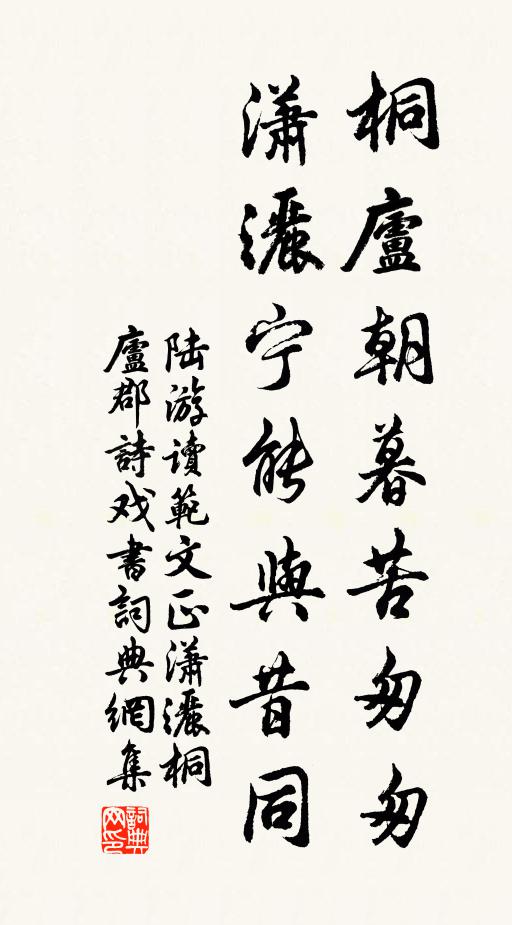 桐廬朝暮苦匆匆
瀟灑宁能與昔同
陆游讀範文正瀟灑桐
廬郡詩戏書詞典網集
詞典
网印